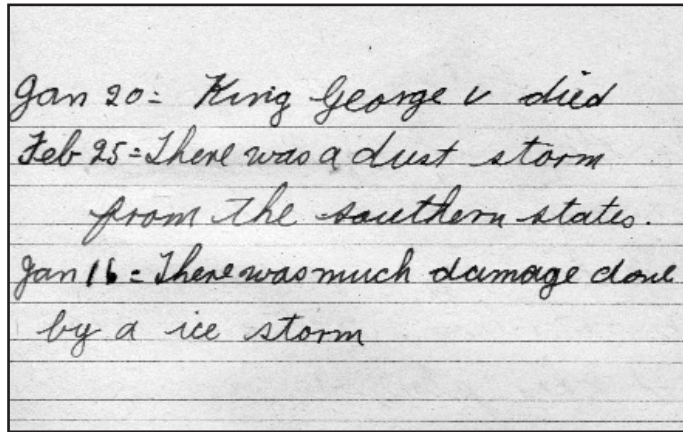 Jan 20 = King George V died
Feb 25 = There was a dust storm
from the southern states.
Jan 16 = There was much damage done
by a ice storm